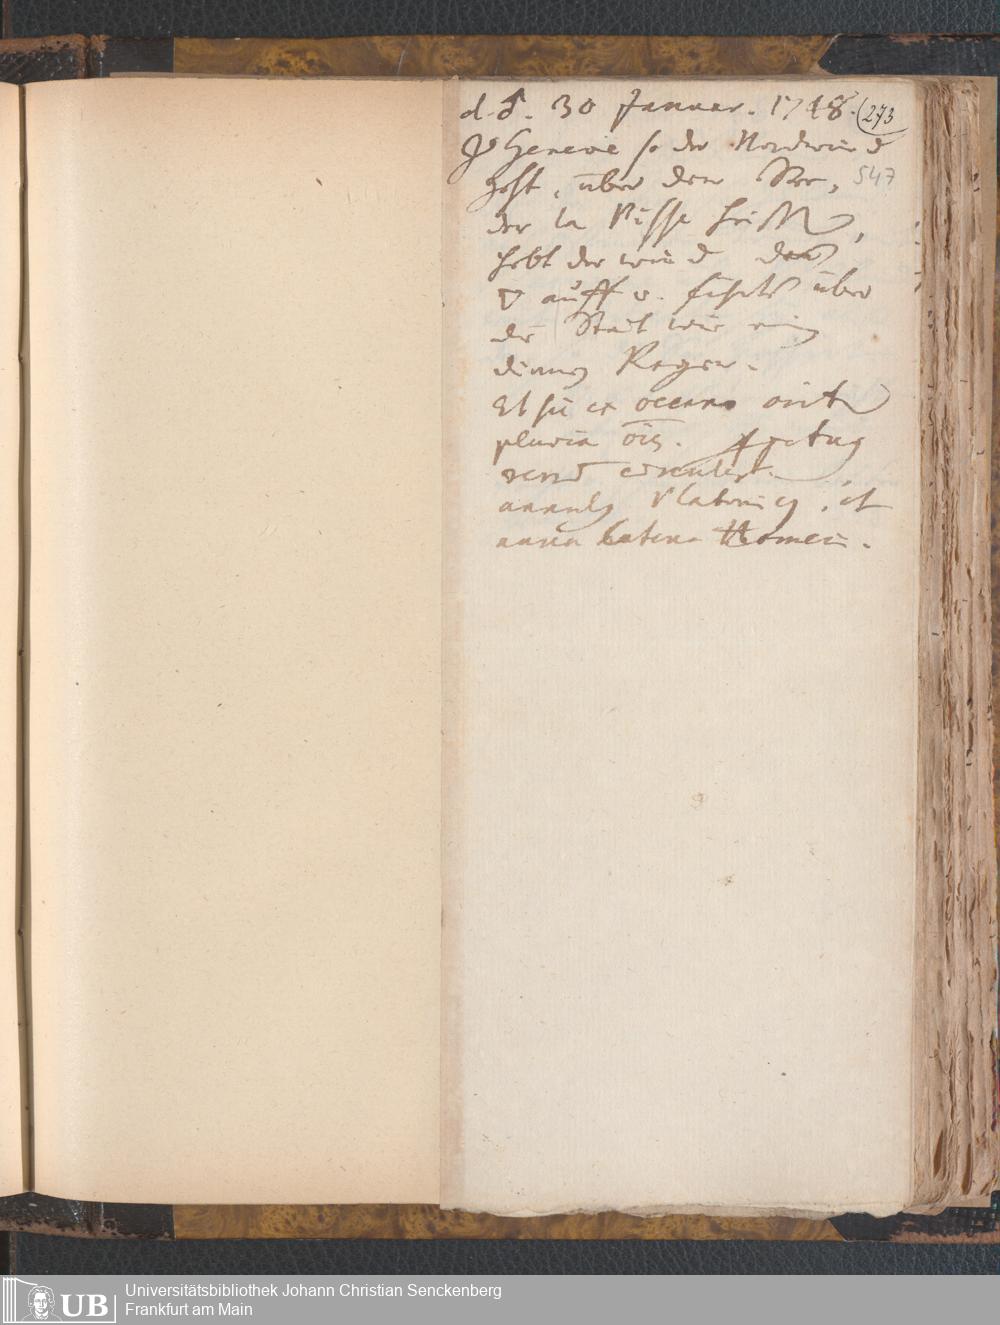 d. ♂. 30 Januar. 1748. (273
Zu Geneve so der Nordwind
geht, über den See, 547
der la Bisse heist,
hebt der wind das
▽ auff u. führts über
die Statt wie ein
dinner Regen.
Et sic ex oceano oritur
pluvia omnis.
rerum circulus.
annulus Platonicus, et
aurea Catena Homeri.
UB
Universitätsbibliothek Johann Christian Senckenberg
Frankfurt am Main